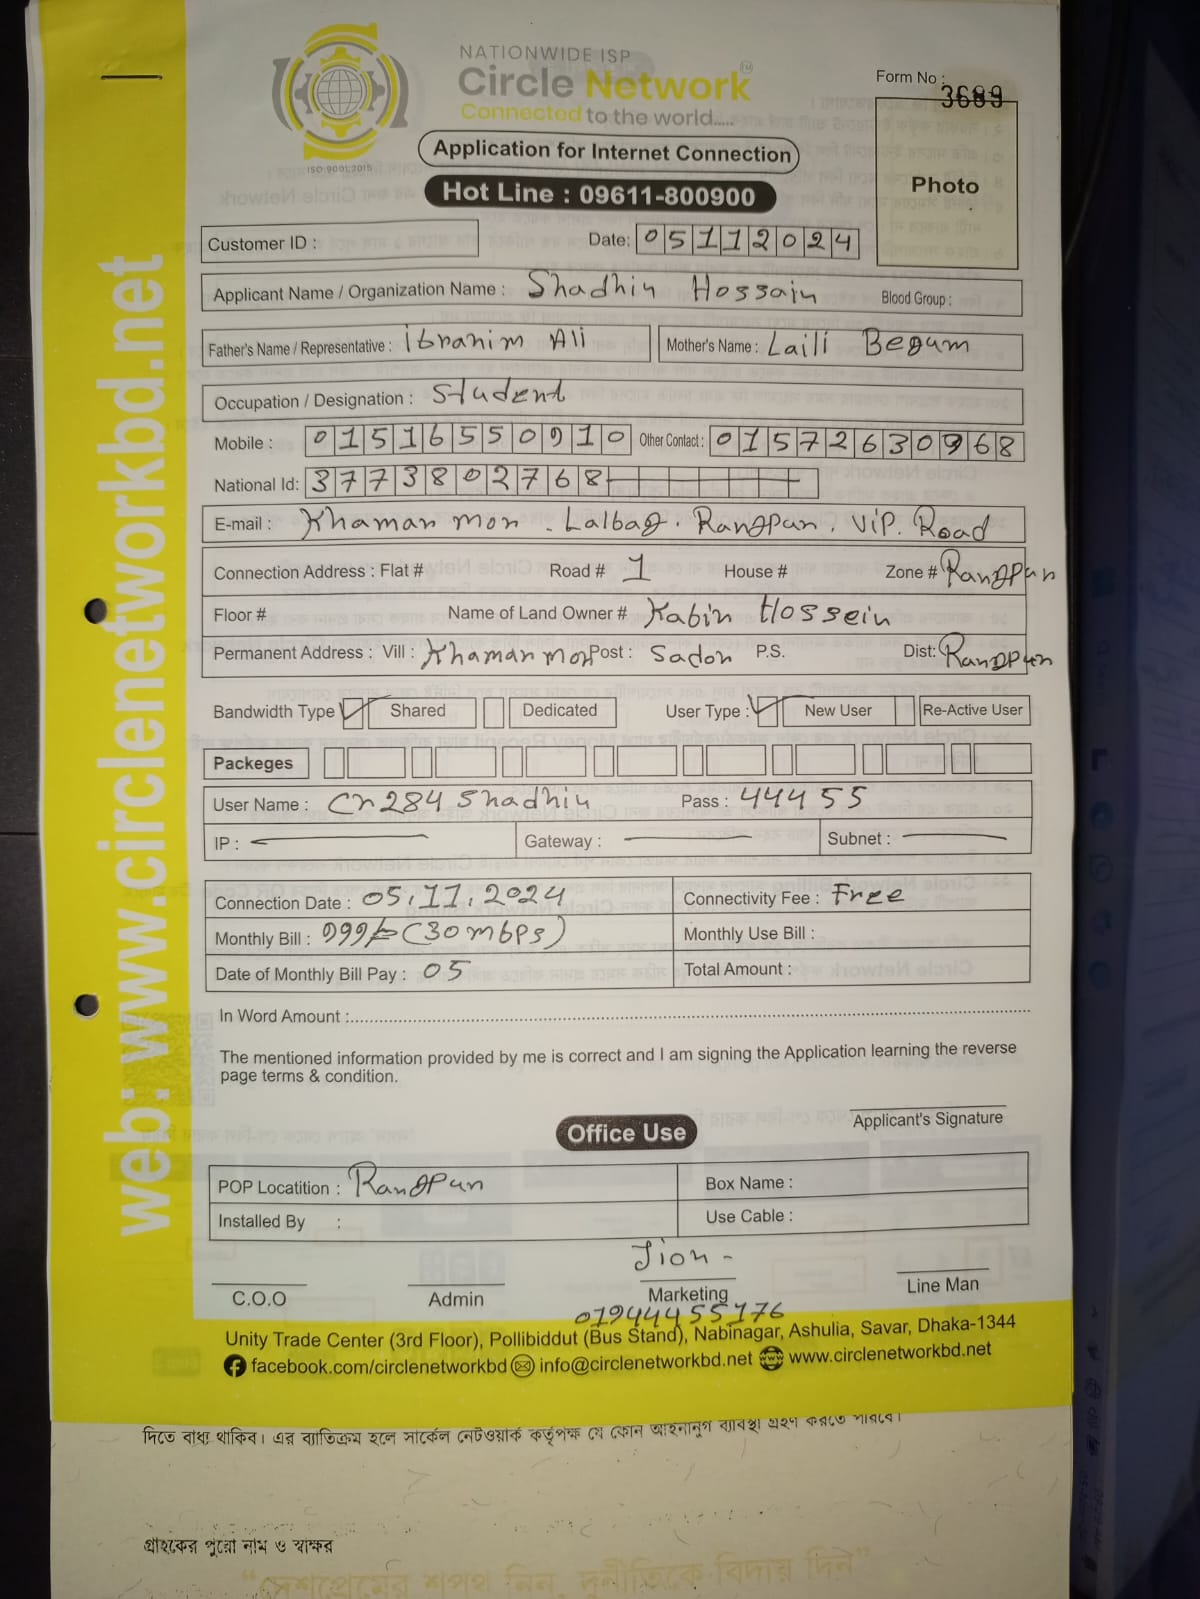 NATIONWIDE ISP
Circle Network
Connected to the world.....
ISO 9001:2015
Form No : 3689
Application for Internet Connection
Hot Line : 09611-800900
Photo
Customer ID :
Date: 05112024
Applicant Name / Organization Name : Shadhin Hossain Blood Group :
Father's Name / Representative : Ibrahim Ali Mother's Name : Laili Begum
Occupation / Designation : Student
Mobile : 01516550910 Other Contact : 01572630968
National Id: 3773802768
E-mail : Khaman mon. Lalbag. Rangpur. ViP. Road
Connection Address : Flat # Road # 1 House # Zone # Rangpur
Floor # Name of Land Owner # Kabir Hossein
Permanent Address : Vill : Khaman mon Post : Sador P.S. Dist: Rangpur
Bandwidth Type Shared Dedicated User Type : New User Re-Active User
Packeges
User Name : Cn284 Shadhin Pass : 44455
IP : Gateway : Subnet :
Connection Date : 05.11.2024 Connectivity Fee : Free
Monthly Bill : 999/= (30 mbps) Monthly Use Bill :
Date of Monthly Bill Pay : 05 Total Amount :
In Word Amount :
The mentioned information provided by me is correct and I am signing the Application learning the reverse
page terms & condition.
Applicant's Signature
Office Use
POP Locatition : Rangpur Box Name :
Installed By : Use Cable :
Jion -
C.O.O Admin Marketing Line Man
01944455176
Unity Trade Center (3rd Floor), Pollibiddut (Bus Stand), Nabinagar, Ashulia, Savar, Dhaka-1344
facebook.com/circlenetworkbd info@circlenetworkbd.net www.circlenetworkbd.net
web: www.circlenetworkbd.net
দিতে বাধ্য থাকিব। এর ব্যতিক্রম হলে সার্কেল নেটওয়ার্ক কর্তৃপক্ষ যে কোন আইনানুগ ব্যবস্থা গ্রহণ করতে পারবে।
গ্রাহকের পুরো নাম ও স্বাক্ষর
“দেশপ্রেমের শপথ নিন, দুর্নীতিকে বিদায় দিন”